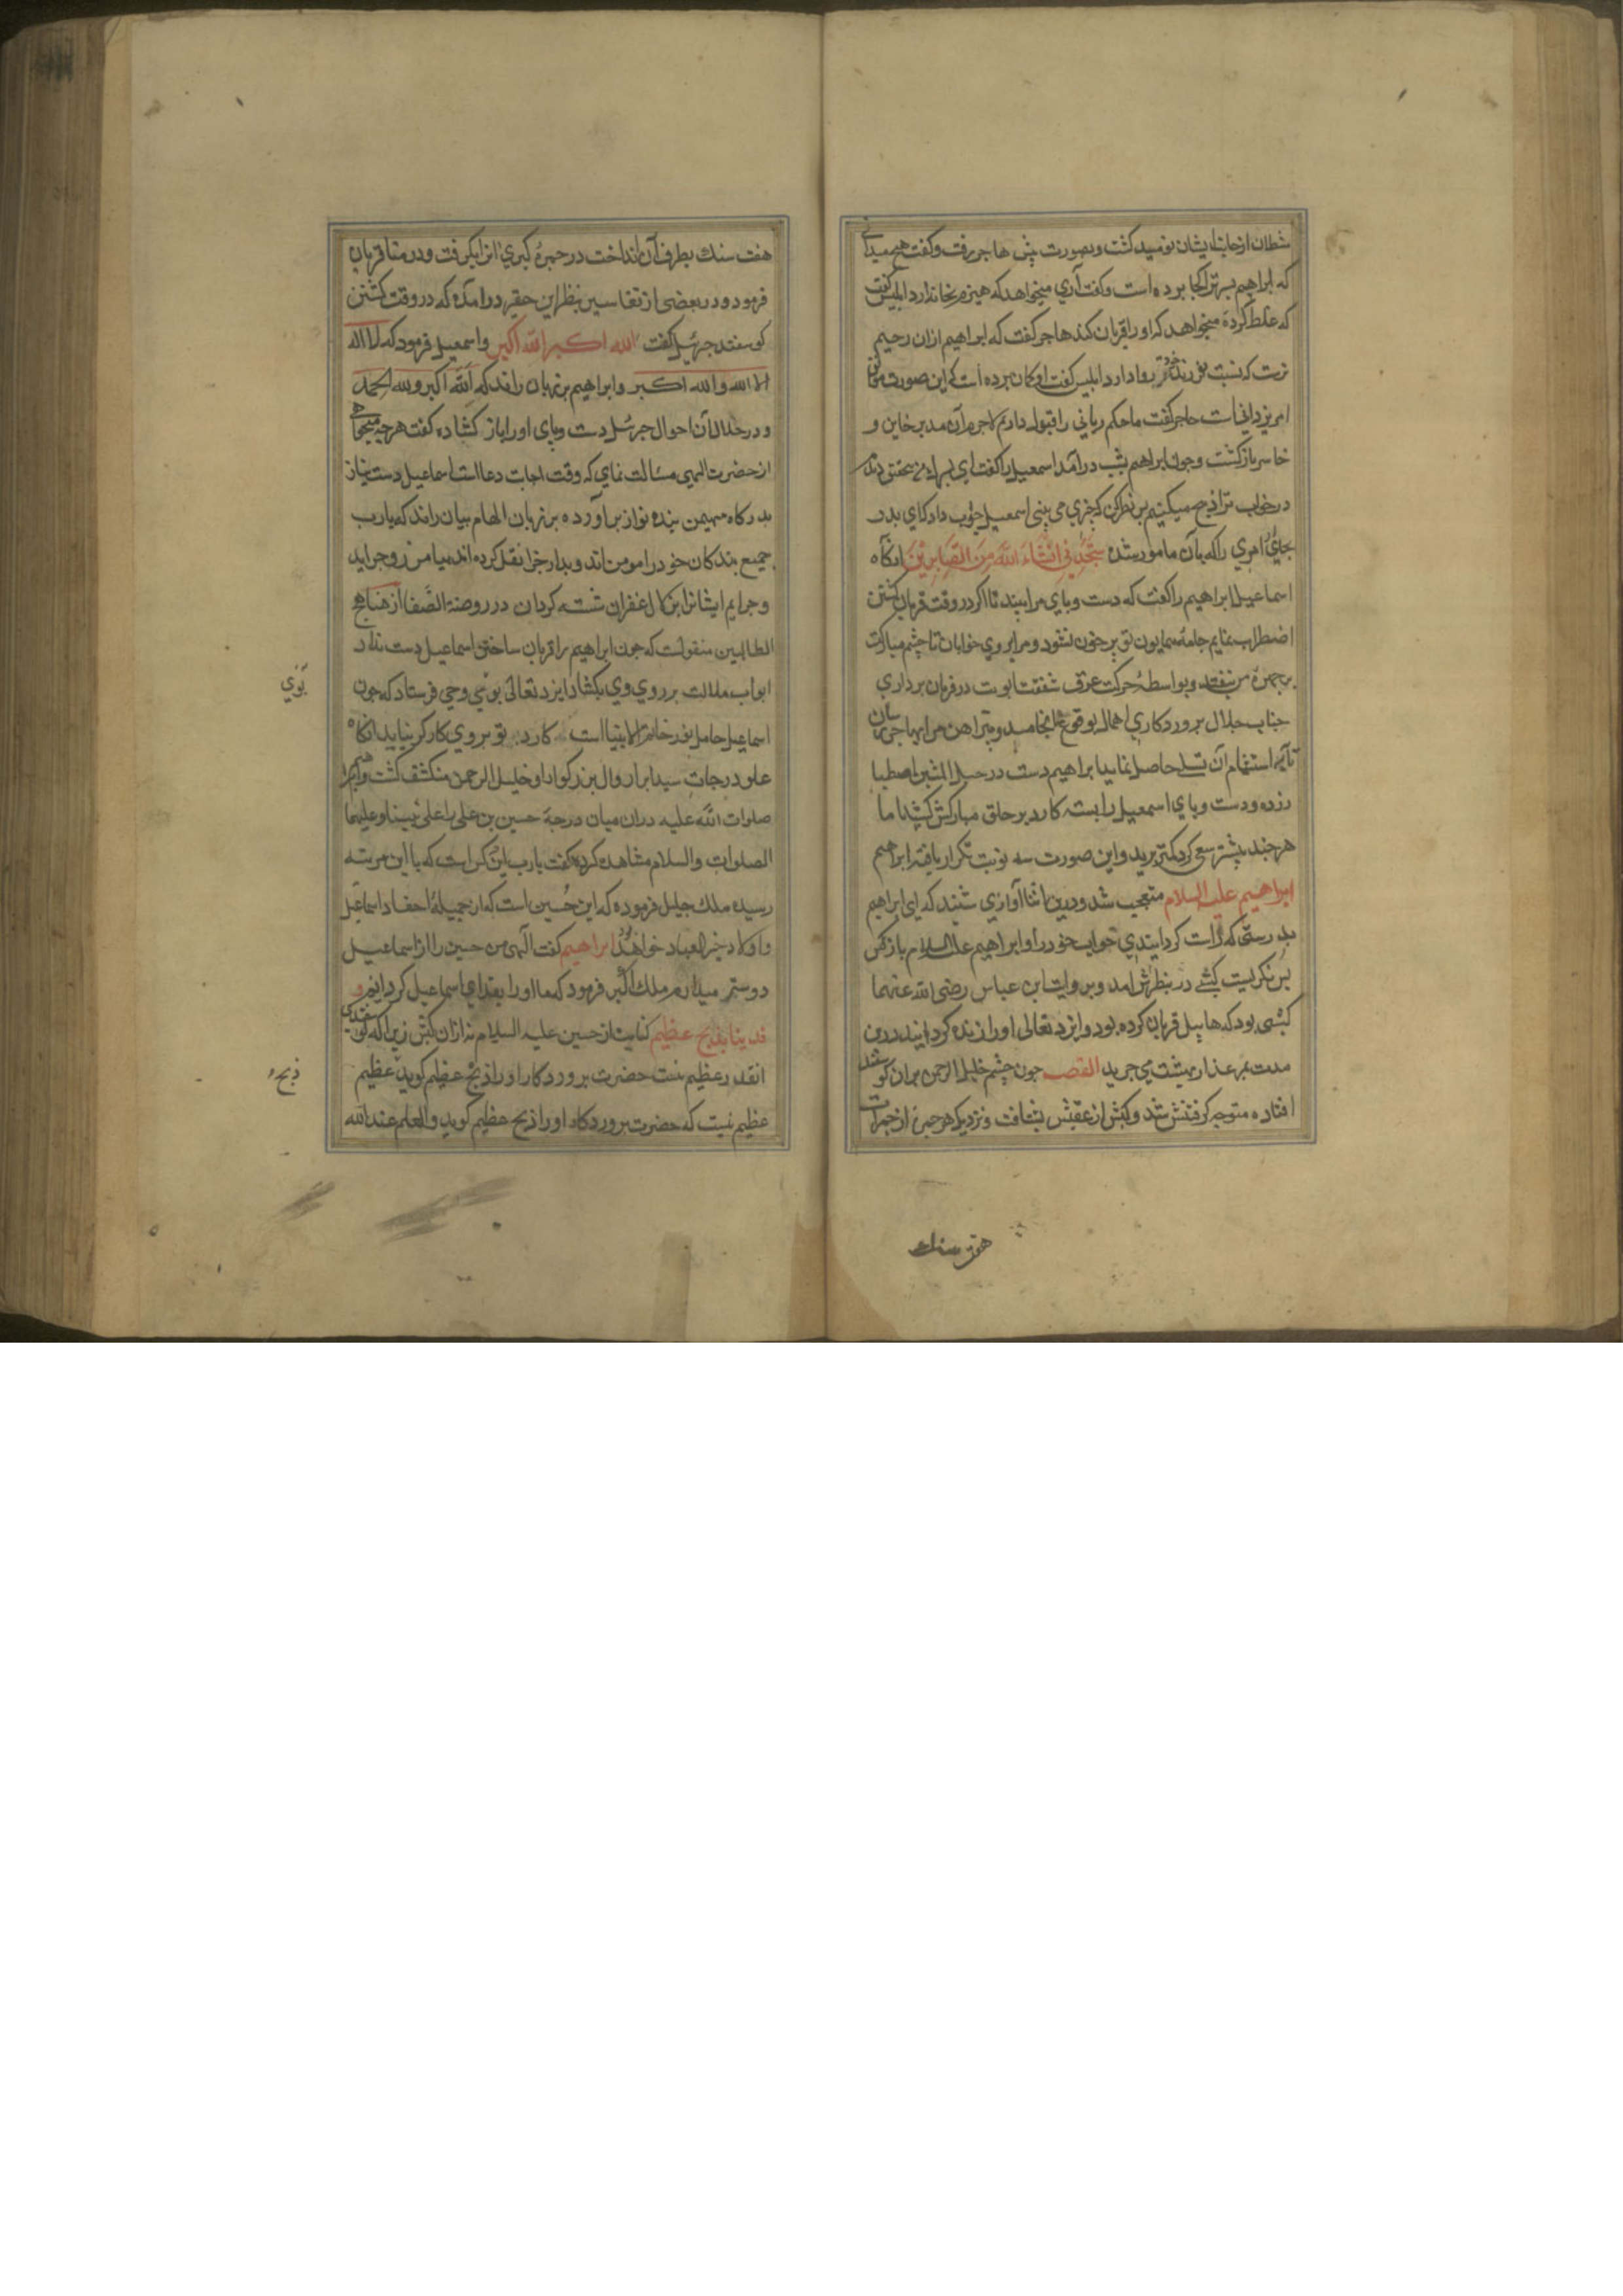 شیطان از جانب ایشان نومید کشت و بصورت پیش هاجر رفت و کفت هیچ میدانی
که ابراهیم پسرترا کجا برده است و کفت آری میخواهد که هیزم بخانه آرد ابلیس کفت
که غلط کردهٔ میخواهد که او را قربان کند هاجر کفت که ابراهیم ازان رحیم
ترست که نسبت بفرزند خود روا دارد ابلیس کفت او کمان برده است که این صورت موافق
امر یزدانیست هاجر کفت ما حکم ربانی را قبول داریم لاجرم آن مدبر خاین و
خاسر بازکشت و چون ابراهیم بشب درآمد اسمعیل را کفت ای پسر
در خواب ترا ذبح میکنم پس نظر کن که چه چیزی می بینی اسمعیل جواب داد که ای پدر
بجای امری را که بآن مامور شده سَتَجِدُنِی اِنْشَاءَ اللهُ مِنَ الصَّابِرِیْنَ آنکاه
اسماعیل ابراهیم را کفت که دست و پای مرا ببند تا اکر در وقت قربان کشتن
اضطراب نمایم جامهٔ همایون تو پر خون نشود و مرا بر روی خوابان تا چشم مبارکت
بر چهرهٔ من نیفتد و بواسطهٔ حرکت عرق شفقت ابوت در فرمان برداری
جناب جلال پروردکاری اهمال بوقوع نه انجامد و پیراهن مرا بهاجر رسان
تا به استشمام آن تسلی حاصل نماید ابراهیم دست در حبل المتین اصطبا
ر زده و دست و پای اسمعیل را بسته کارد بر حلق مبارکش کشید اما
هر چند بیشتر سعی کرد کمتر برید و این صورت سه نوبت تکرار یافته ابراهیم
ابراهیم علیه السلام متعجب شد و درین اثنا آوازی شنید که ای ابراهیم
بدرستی که راست کردانیدی خواب خود را و ابراهیم علیه السلام باز پس
پس نکریست کبشی در نظرش امد و بروایت ابن عباس رضی الله عنهما
کبشی بود که هابیل قربان کرده بود و ایزد تعالی او را زنده کردانید درین
مدت بمرغزار بهشت می چرید القصه چون چشم خلیل الرحمن بران کوسفند
افتاده متوجه کرفتنش شد و کبش از عقبش بشتافت و نزدیک هر جمره از جمرات
هفت سنك
هفت سنك بطرف آن انداخت در جمرهٔ کبری انرا بکرفت و در منا قربان
فرمود و در بعضی از تفاسیر بنظر این حقیر درآمده که در وقت کشتن
کوسفند جبرئیل کفت الله اکبر الله اکبر و اسمعیل فرمود که لا اله
الا الله والله اکبر و ابراهیم بر زبان راند که الله اکبر ولله الحمد
و در خلال آن احوال جبرئیل دست و پای او را باز کشاده کفت هر چه میخواهی
از حضرت الهی مسالت نمای که وقت اجابت دعا است اسماعیل دست نیاز
بدرکاه مهیمن بنده نواز براورده بر زبان الهام بیان راند که یارب
جمیع بندکان خود را مومن اند و بدار جزا نقل کرده اند بیامرز و جراید
و جرایم ایشانرا بزلال غفران شسته کردان در روضة الصفا از مناهج
الطالبین منقولست که چون ابراهیم را قربان ساختن اسماعیل دست نداد
ابواب ملالت بر روی وی بکشاد ایزد تعالی بوی وحی فرستاد که چون
بوی
اسماعیل حامل نور خاتم الانبیا است کارد تو بر وی کارکر نیاید انکاه
علو درجات سید ابرار و ال بزرکوار او خلیل الرحمن منکشف کشت و ابراهیم
صلوات الله علیه دران میان درجهٔ حسین بن علی را علی نبینا وعلیهما
الصلوات والسلام مشاهده کرده کفت یارب این کس است که با این مرتبه
رسیده ملک جلیل فرموده که این حُسین است که از جمیلهٔ احفاد اسماعیل
و اولاد خیر العباد خواهد بود ابراهیم کفت الهی من حسین را از اسماعیل
دوستر میدارم ملک اکبر فرمود که ما او را بفدای اسماعیل کردانیم و
فدیناه بذبح عظیم کنایت از حسین علیه السلام نه ازان کبش زیرا که کوسفندی
انقدر عظیم نیست حضرت پروردکار او را ذبح عظیم کوید عظیم
ذبح
عظیم نیست که حضرت پروردکار او را ذبح عظیم کوید والعلم عند الله